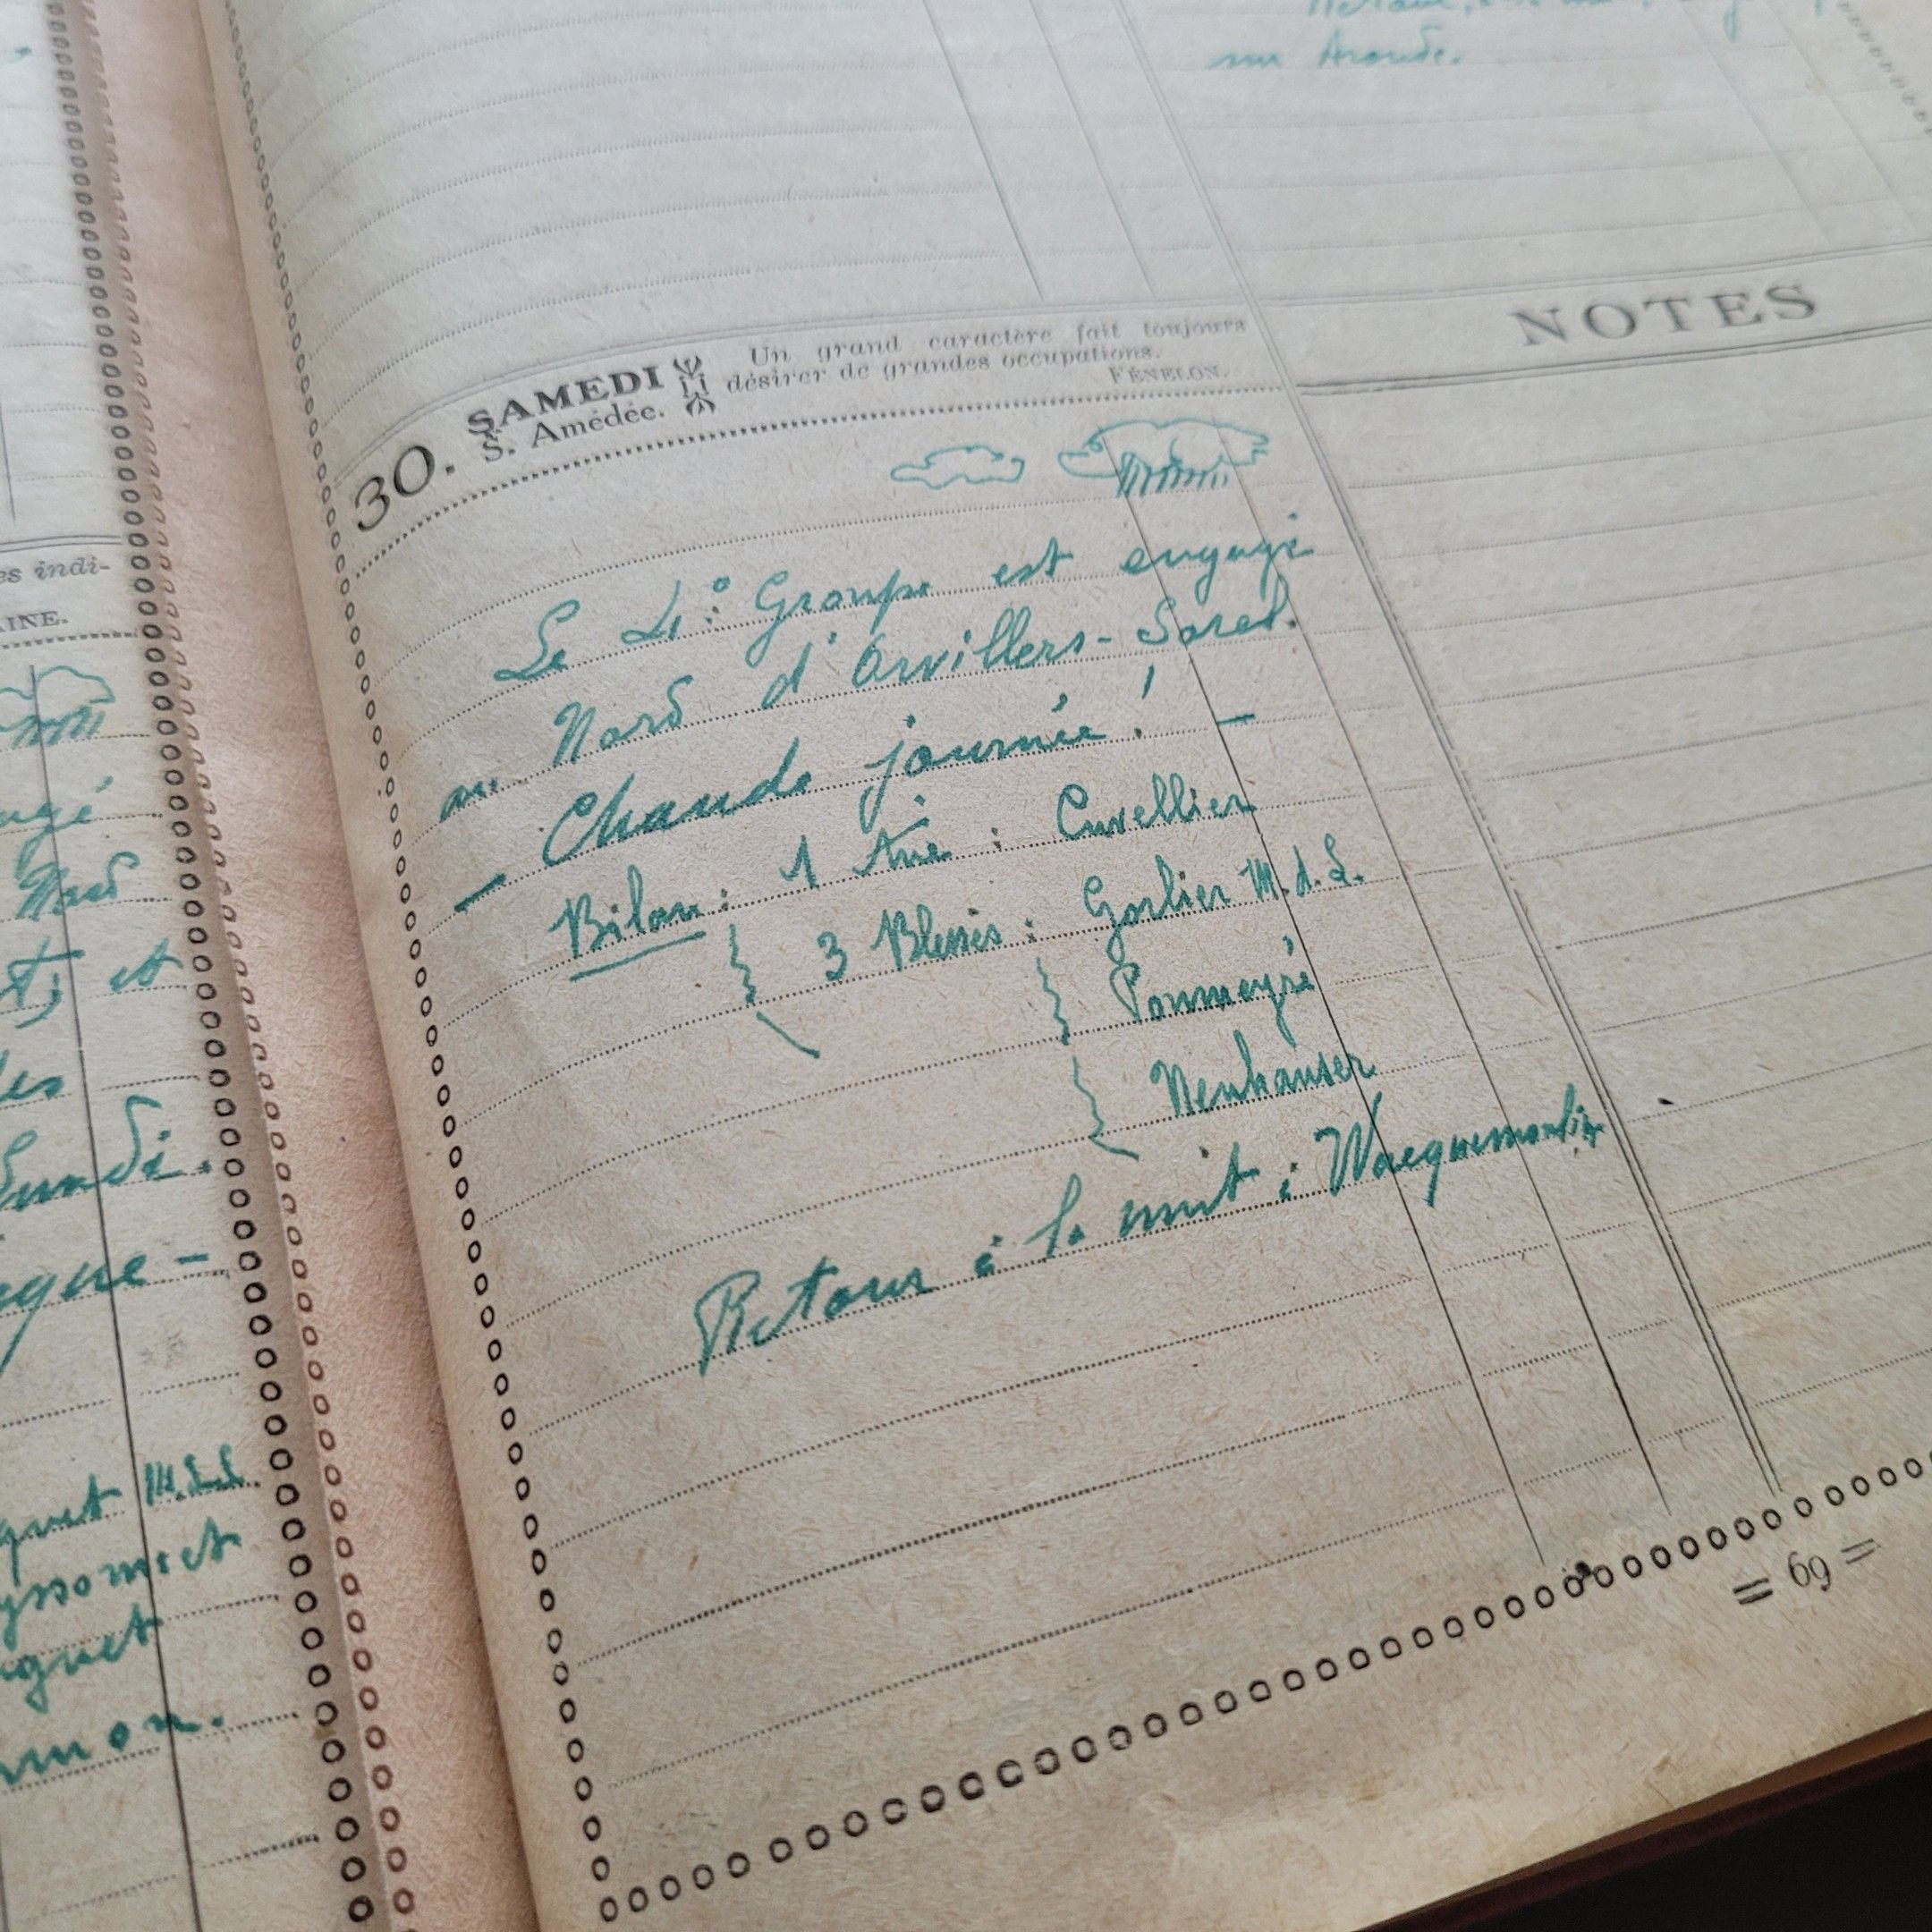 sur Aronde.
NOTES
30. SAMEDI
S. Amédée.
Un grand caractère fait toujours
désirer de grandes occupations.
FÉNELON.
Le 4e Groupe est engagé
au Nord d'Orvillers-Sorel.
— Chaude journée ! —
Bilan : 1 Tué : Cuvellier
3 Blessés : Gorlier M.d.L.
Pommeyré
Neuhauser
Retour à la nuit : Wacquemoulin
= 69 =
es indi-
AINE.
Nord
et
les
Lundi.
M.d.L.